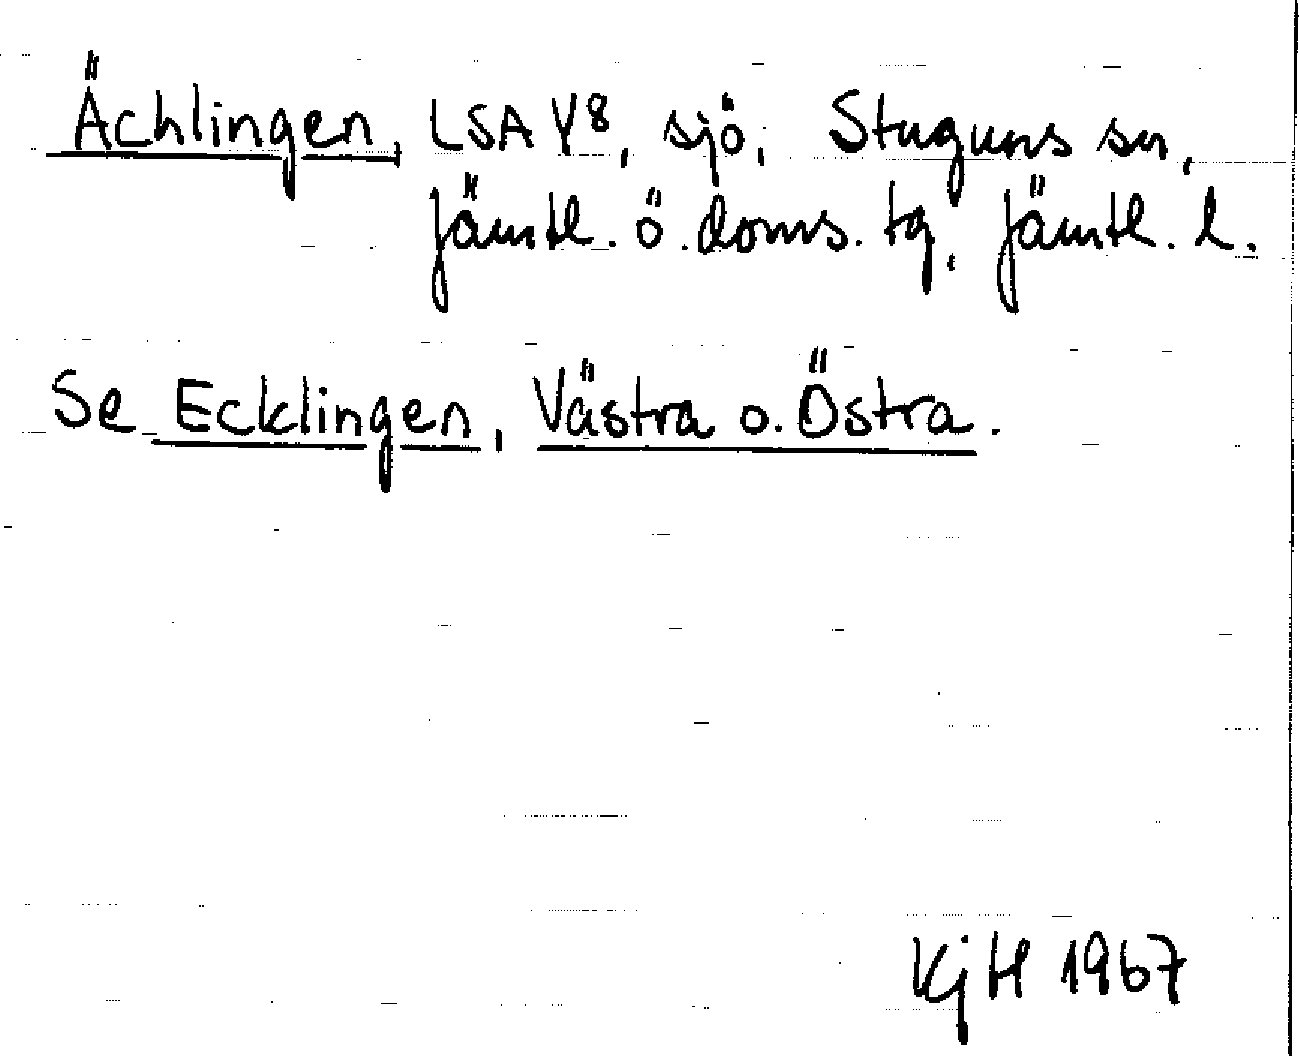 Ächlingen, LSA Y8, sjö, Stuguns sn,
Jämtl. ö. doms. tg, Jämtl. l.
Se Ecklingen, Västra o. Östra.
KjH 1967